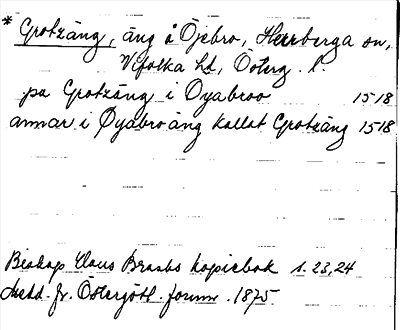 * Grotzäng, äng å Öjebro, Herrberga sn,
Vifolka hd, Österg. l.
pa Grotzäng i Oyabroo 1518
annar i Øyabro äng kallat Grotzäng 1518
Biskop Claus Brasks kopiebok s. 23,24
Medd. fr. Östergötl. fornm. 1875